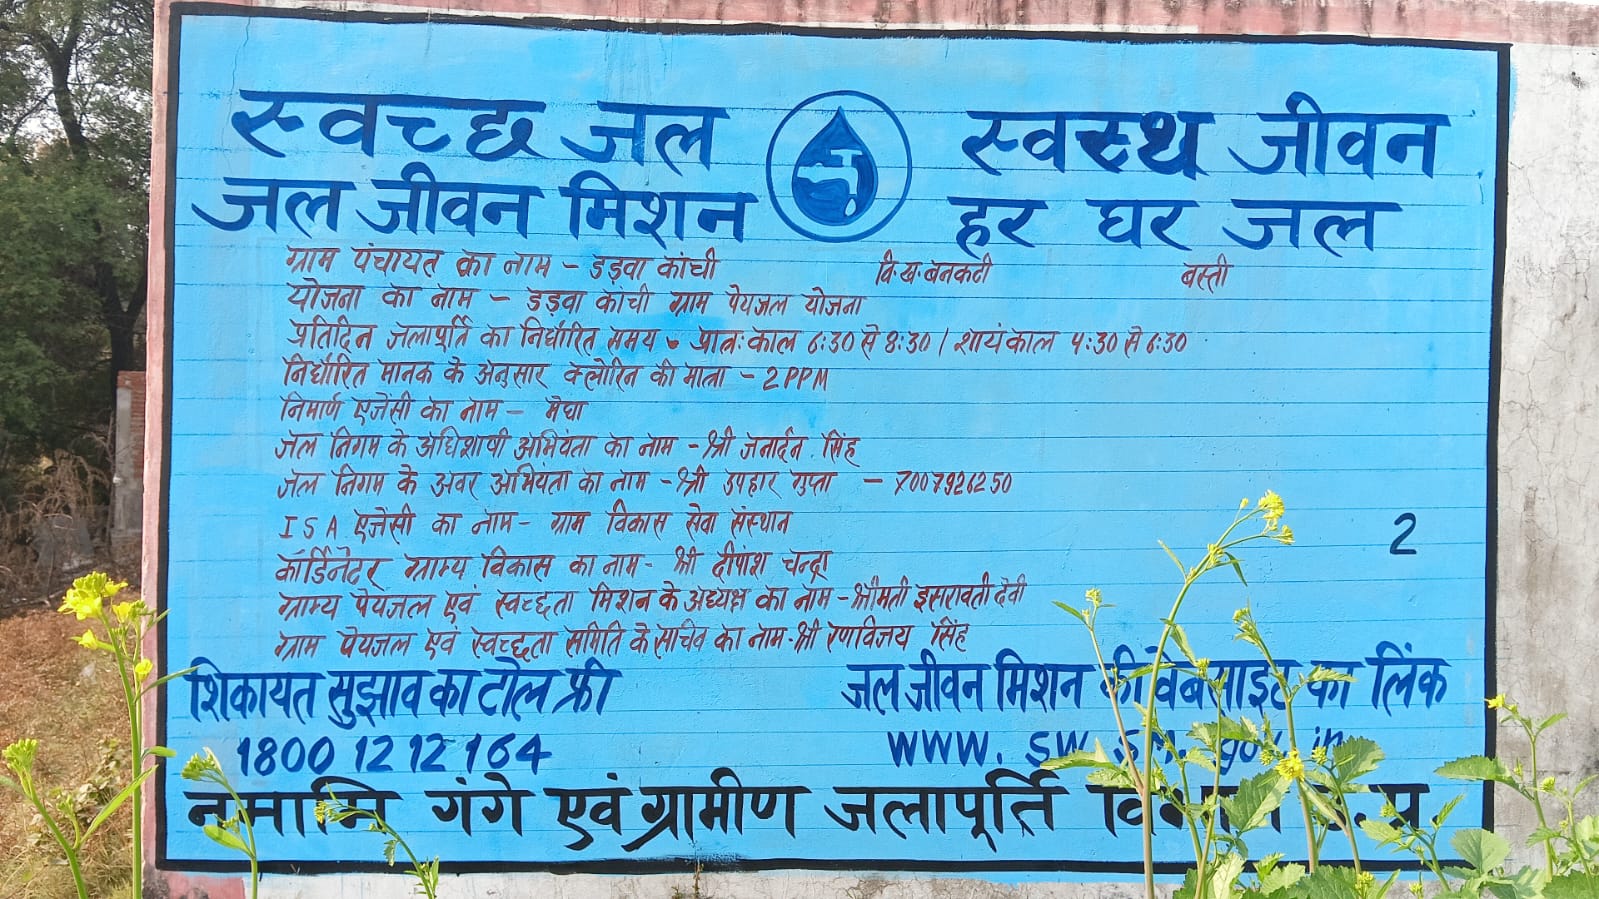 स्वच्छ जल स्वस्थ जीवन
जल जीवन मिशन हर घर जल
ग्राम पंचायत का नाम - डड़वा कांची वि.ख.बनकटी बस्ती
योजना का नाम - डड़वा कांची ग्राम पेयजल योजना
प्रतिदिन जलापूर्ति का निर्धारित समय - प्रातःकाल 6:30 से 8:30 / शायंकाल 4:30 से 6:30
निर्धारित मानक के अनुसार क्लोरिन की मात्रा - 2 PPM
निमार्ण एजेंसी का नाम - मेघा
जल निगम के अधिशाषी अभियंता का नाम - श्री जनार्दन सिंह
जल निगम के अवर अभियंता का नाम - श्री उपहार गुप्ता - 7007926250
ISA एजेंसी का नाम - ग्राम विकास सेवा संस्थान
2
कॉर्डिनेटर ग्राम्य विकास का नाम - श्री दीपांश चन्द्रा
ग्राम्य पेयजल एवं स्वच्छता मिशन के अध्यक्ष का नाम - श्रीमती इसरावती देवी
ग्राम पेयजल एवं स्वच्छता समिति के सचिव का नाम - श्री रणविजय सिंह
शिकायत सुझाव का टोल फ्री जल जीवन मिशन की वेबसाइट का लिंक
1800 12 12 164 www.
नमामि गंगे एवं ग्रामीण जलापूर्ति विभाग उ.प्र.